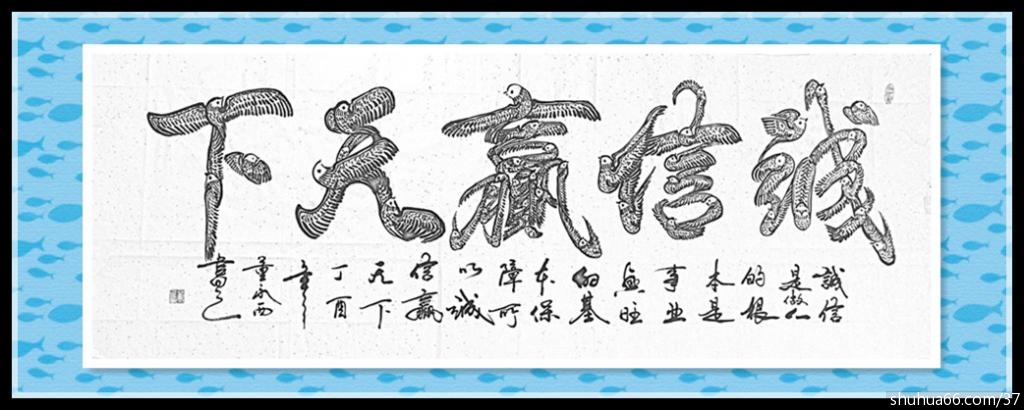 诚信赢天下
誠信
是做人
的根
本是
事业
兴旺
的基
本保
障所
以诚
信赢
天下
丁酉
年
董永西
書之
shuhua66.com/37